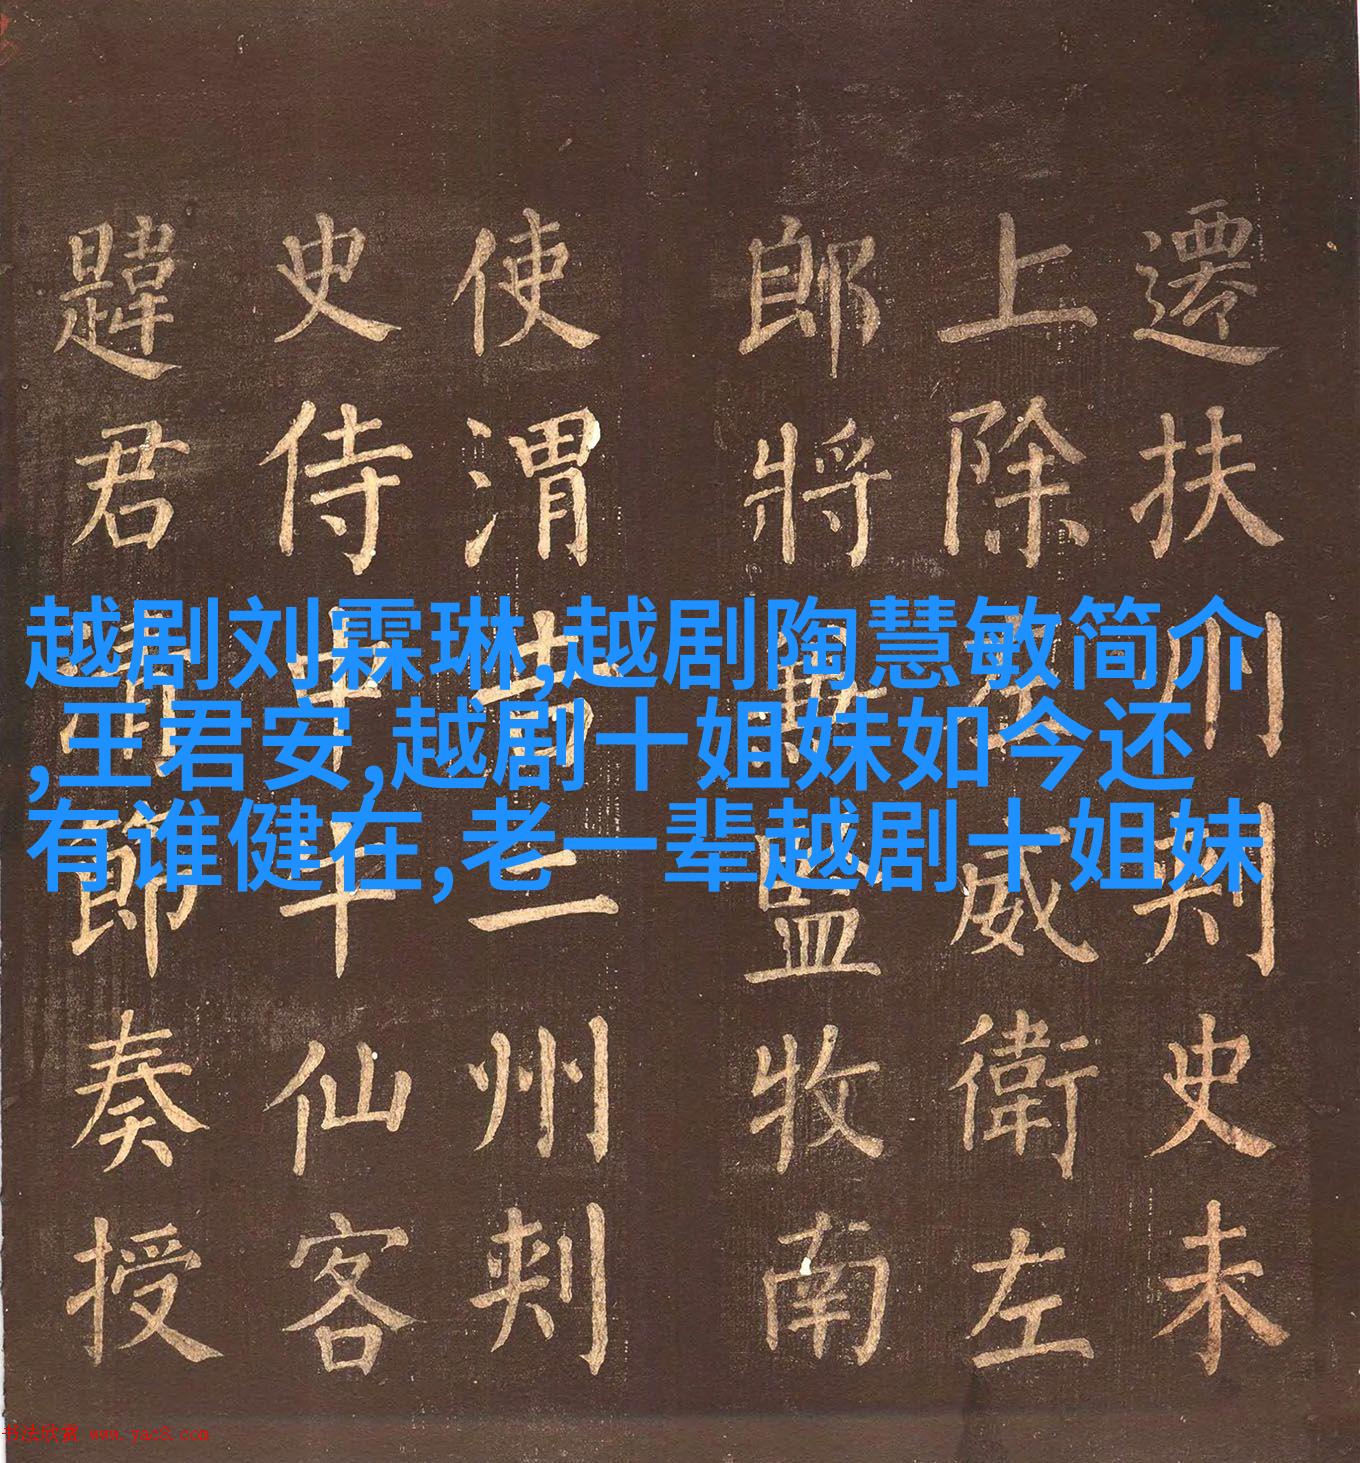 越剧刘霖琳,越剧陶慧敏简介
,王君安,越剧十姐妹如今还
有谁健在,老一辈越剧十姐妹
遷扶州刺史未
上除右威衛左
郎將監牧南
使渭吉二州刺
史侍中牛仙客
韙君清節奏授
书法欣赏 www.yac8.com